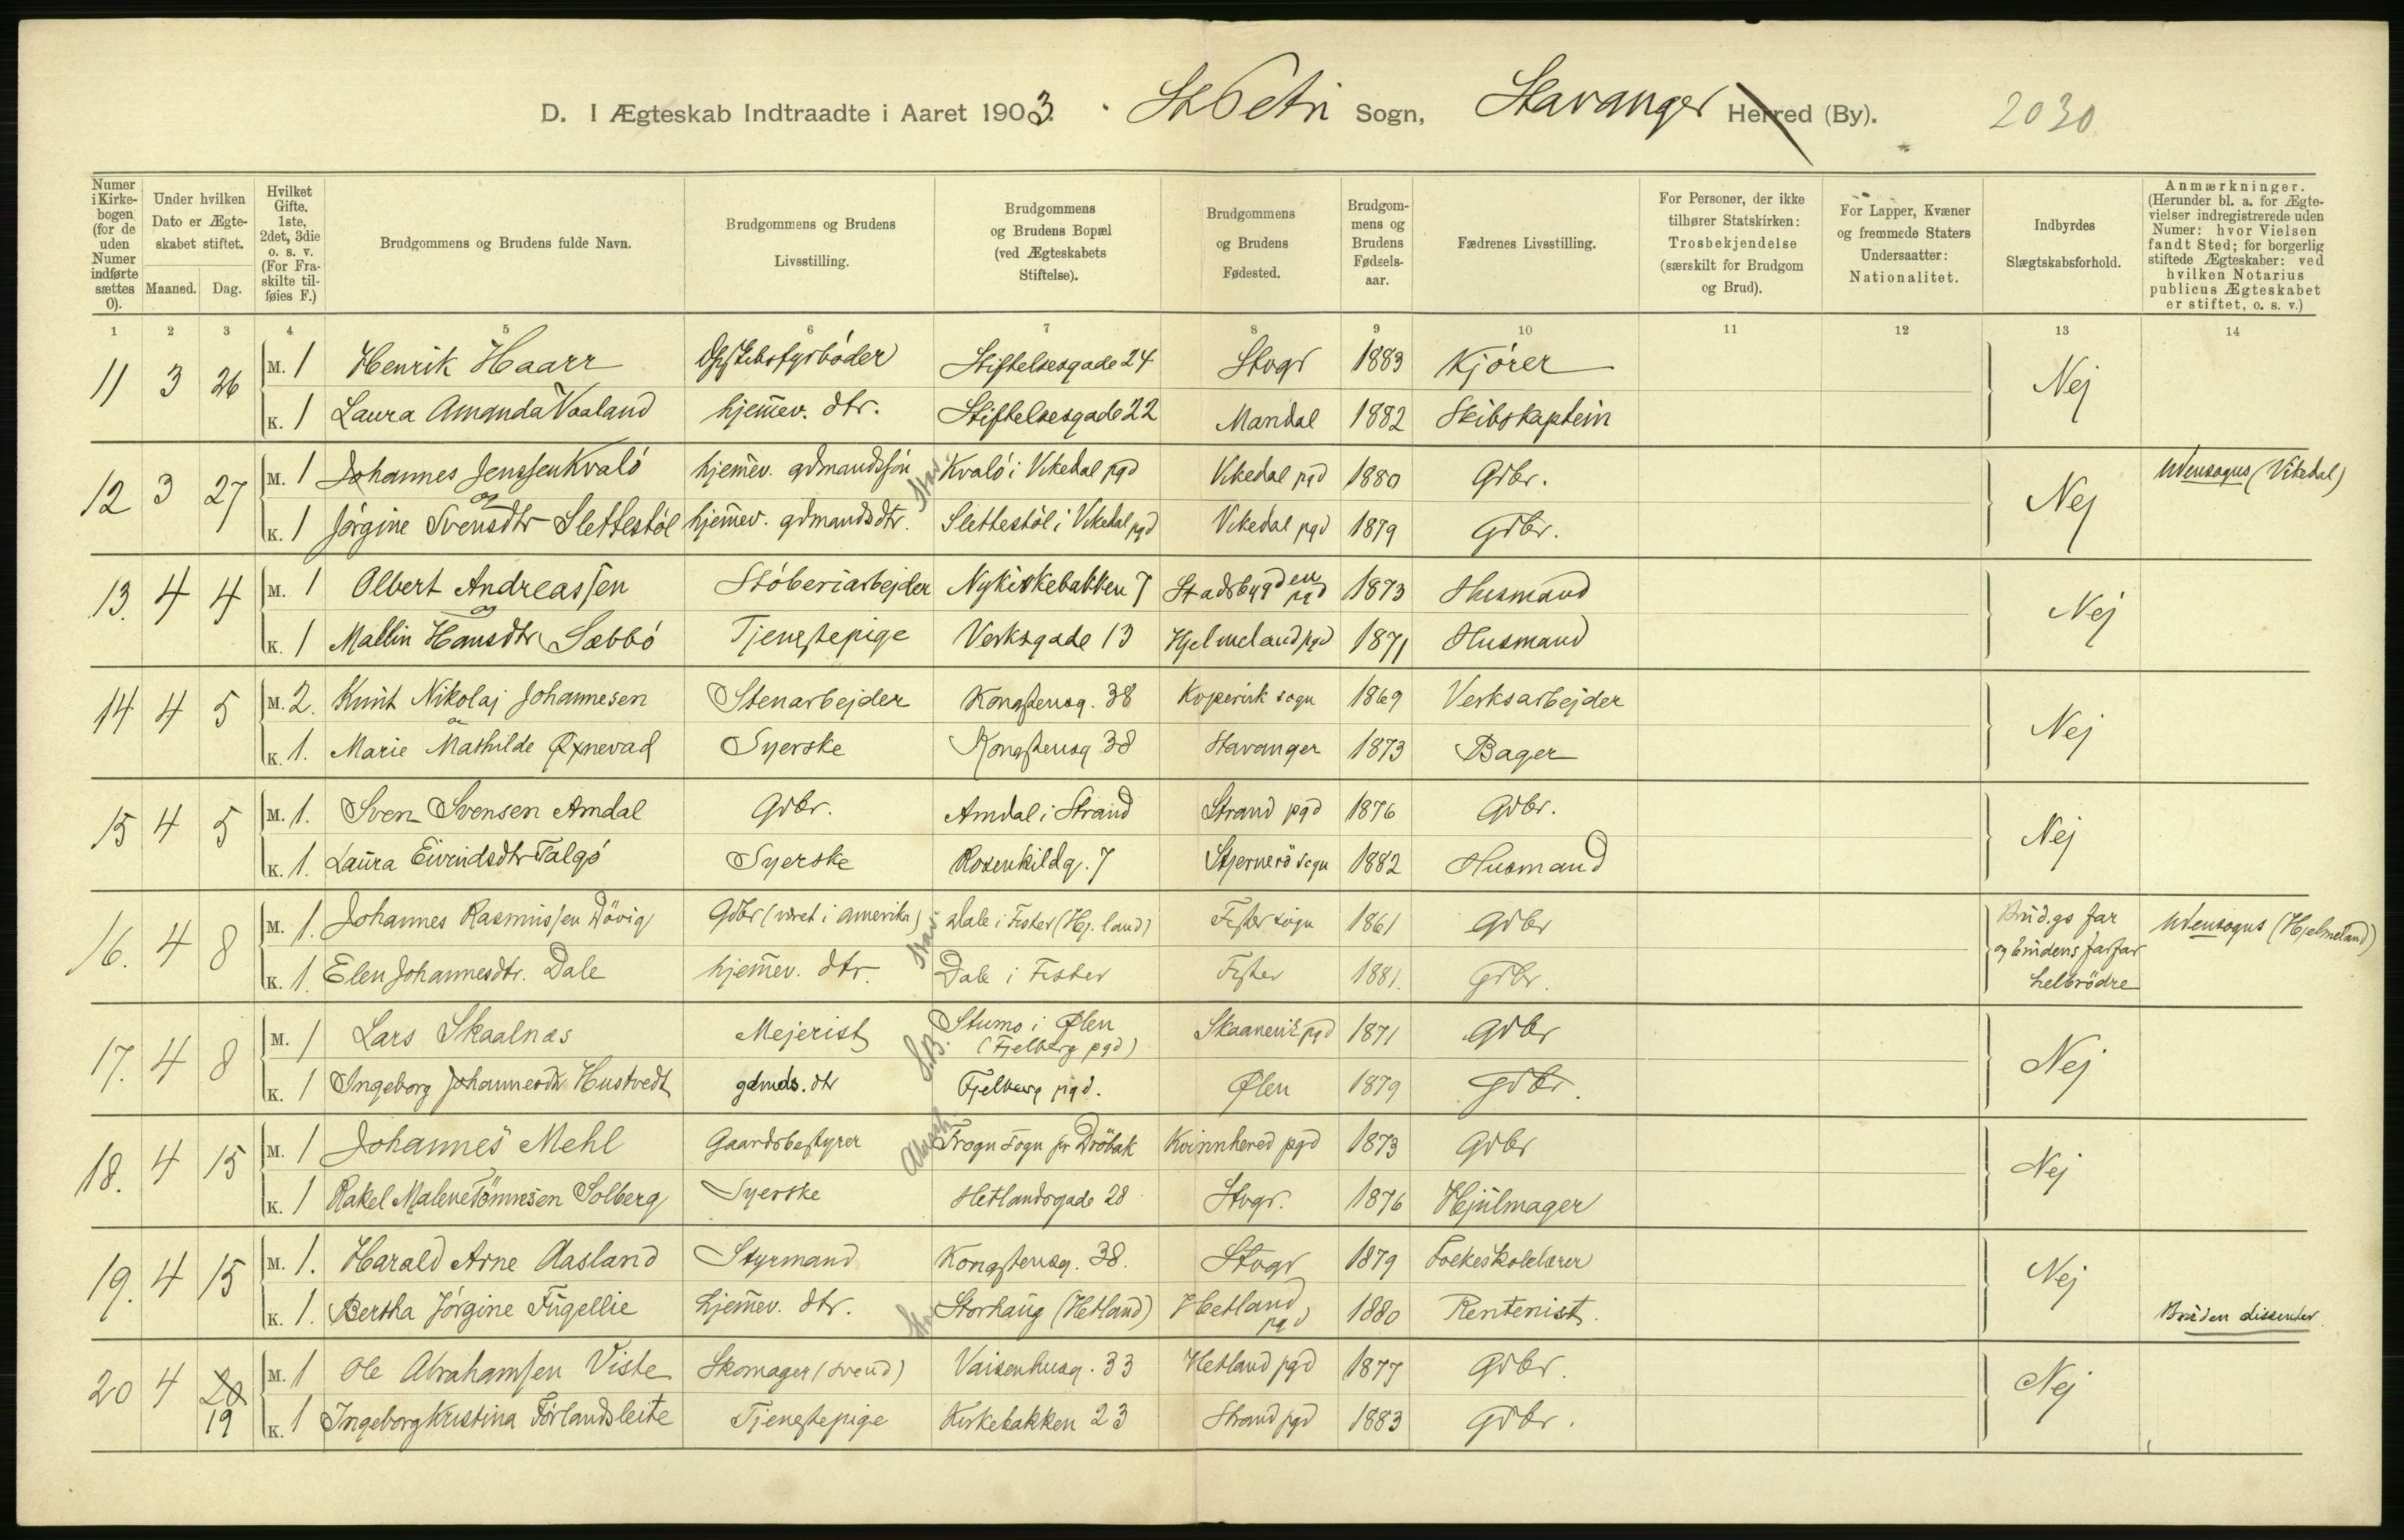 D. I Ægteskab Indtraadte i Aaret 1903. St Petri Sogn, Stavanger Herred (By). 2030
Numer i Kirkebogen (for de uden Numer indførte sættes 0).
Under hvilken Dato er Ægteskabet stiftet.
Maaned. Dag.
Hvilket Gifte. 1ste, 2det, 3die o. s. v. (For Fraskilte tilføies F.)
Brudgommens og Brudens fulde Navn.
Brudgommens og Brudens Livsstilling.
Brudgommens og Brudens Bopæl (ved Ægteskabets Stiftelse).
Brudgommens og Brudens Fødested.
Brudgommens og Brudens Fødselsaar.
Fædrenes Livsstilling.
For Personer, der ikke tilhører Statskirken: Trosbekjendelse (særskilt for Brudgom og Brud).
For Lapper, Kvæner og fremmede Staters Undersaatter: Nationalitet.
Indbyrdes Slægtskabsforhold.
Anmærkninger. (Herunder bl. a. for Ægtevielser indregistrerede uden Numer: hvor Vielsen fandt Sted; for borgerlig stiftede Ægteskaber: ved hvilken Notarius publicus Ægteskabet er stiftet, o. s. v.)
1 2 3 4 5 6 7 8 9 10 11 12 13 14
11 3 26 M. 1 Henrik Haarr Stiftelsesgade 24 Stvgr 1883 Kjörer Nej
K. 1 Laura Amanda Vaaland hjemev. dtr. Stiftelsesgade 22 Mandal 1882 Skibskaptein
12 3 27 M. 1 Johannes Jenssen Kvalö hjemev. gdmandssön Kvalö i Vikedal pgd Vikedal pgd 1880 Gdbr. Nej Udensogns (Vikedal)
og
K. 1 Jörgine Svensdtr Slettestöl hjemev. gdmandsdtr. Slettestöl i Vikedal pgd Vikedal pgd 1879 Gdbr.
13. 4 4 M. 1 Olbert Andreassen Stöberiarbejder Nykirkebakken 7 Stadsbygden pgd 1873 Husmand Nej
og
K. 1 Mallin Hansdtr Sæbbö Tjenestepige Verksgade 13 Hjelmeland pgd 1871 Husmand
14 4 5 M. 2. Knut Nikolaj Johannesen Stenarbejder Kongstensg. 38 Kopervik sogn 1869 Verksarbejder Nej
og
K. 1. Marie Mathilde Øxnevad Syerske Kongstensg 38 Stavanger 1873 Bager
15 4 5 M. 1. Sven Svensen Amdal Gdbr. Amdal i Strand Strand pgd 1876 Gdbr. Nej
K. 1. Laura Eivindsdtr Talgö Syerske Rosenkildg. 7 Stjernerö sogn 1882 Husmand
16. 4 8 M. 1. Johannes Rasmussen Dövig Gdbr (været i Amerika) Dale i Fister (Hj.land) Fister sogn 1861 Gdbr Brudgs far og brudens farfar helbrödre Udensogns (Hjelmeland)
K. 1. Elen Johannesdtr. Dale hjemev. dtr. Dale i Fister Fister 1881. Gdbr.
17. 4 8 M. 1 Lars Skaalnæs Mejerist S.B. Stumo i Ølen (Fjelberg pgd) Skaanevik pgd 1871 Gdbr Nej
K. 1 Ingeborg Johannesdtr Hustvedt gdmds. dtr Fjelberg pgd. Ølen 1879 Gdbr.
18. 4 15 M. 1 Johannes Mehl Gaardsbestyrer Frogn sogn pr Dröbak Kvinnhered pgd 1873 Gdbr Nej
K. 1 Rakel Malene Tönnesen Solberg Syerske Hetlandsgade 28 Stvgr. 1876 Hjulmager
19. 4 15 M. 1. Harald Arne Aasland Styrmand Kongstensg. 38. Stvgr 1879 Folkeskolelærer Nej
K. 1. Bertha Jörgine Fugellie hjemev. dtr. Storhaug (Hetland) Hetland pgd 1880 Rentenist. Bruden dissenter.
20 4 20 M. 1 Ole Abrahamsen Viste Skomager (svend) Vaisenhusg. 33 Hetland pgd 1877 Gdbr. Nej
19 K. 1 Ingeborg Kristina Förlandsleite Tjenestepige Kirkebakken 23 Strand pgd 1883 Gdbr.